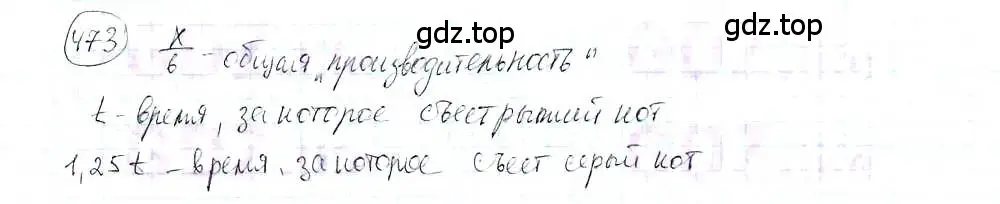 gdz.top gdz.top
473 x/6 - общая „производительность"
t - время, за которое съест рыжий кот
1,25t - время, за которое съест серый кот
gdz.top